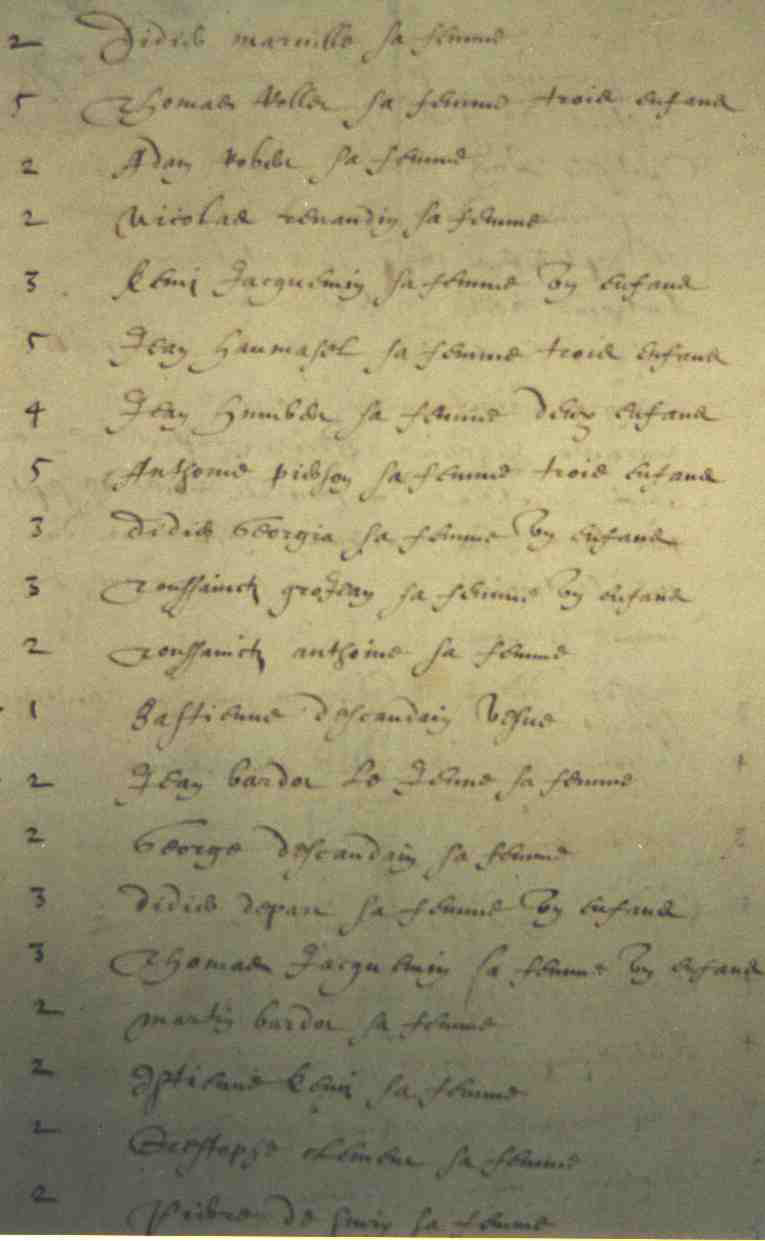 2 Didier marville sa femme
5 Thomas sa femme trois enfans
2 Adam sa femme
2 Nicolas renaudin sa femme
3 Remi Jacquemin sa femme un enfans
5 Jean haumasel sa femme trois enfans
4 Jean humber sa femme deux enfans
5 Anthoine pierson sa femme trois enfans
3 didier George sa femme un enfans
3 Toussainct groJean sa femme un enfans
2 Toussainct anthoine sa femme
1 Bastienne descandain vefue
2 Jean bardot le Jeune sa femme
2 George descandain sa femme
3 didier sa femme un enfans
3 Thomas Jacquemin sa femme un enfans
2 martin bardot sa femme
2 Remi sa femme
2 clement sa femme
2 de sa femme